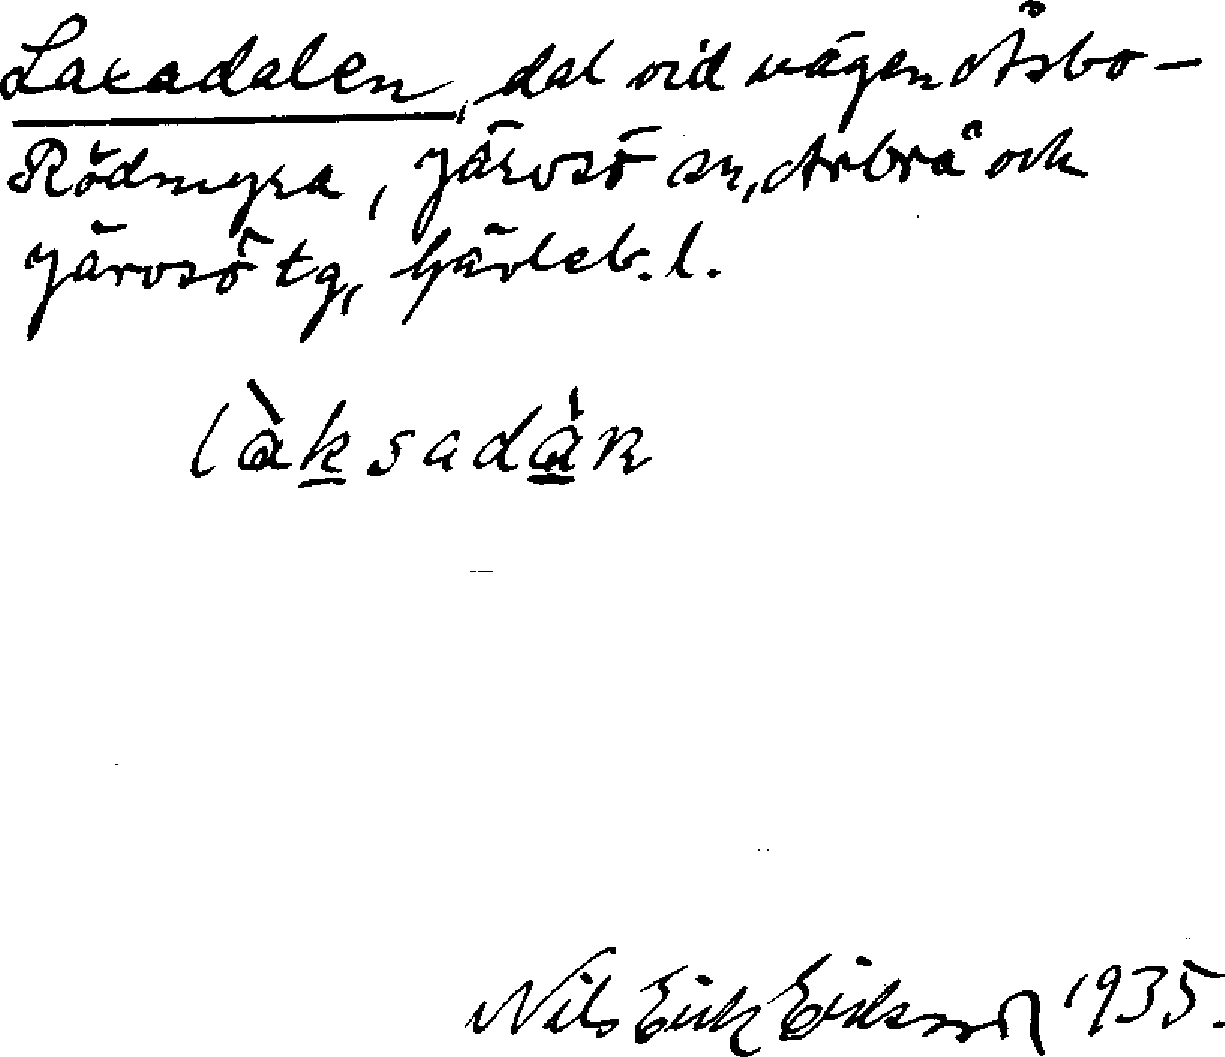 Laxadalen, dal vid vägen Åsbo –
Rödmyra, Järvsö sn, Arbrå och
Järvsö tg, Gävleb. l.
làksadàn
Nils Erik Eriksson 1935.